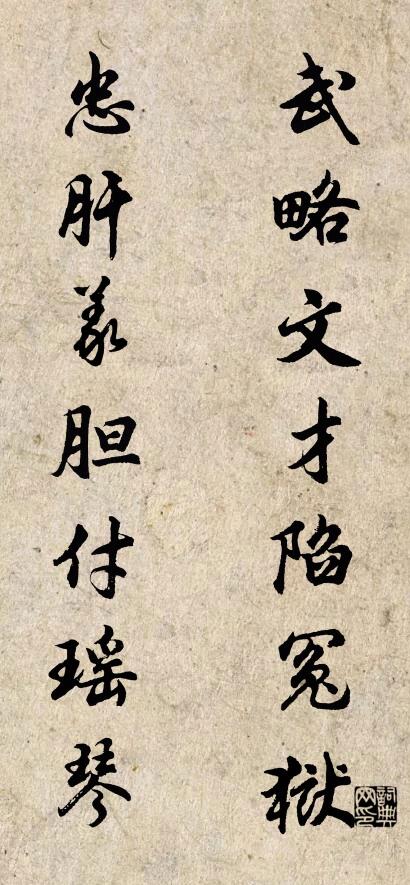 武略文才陷冤獄
忠肝義胆付瑶琴
詞典网印